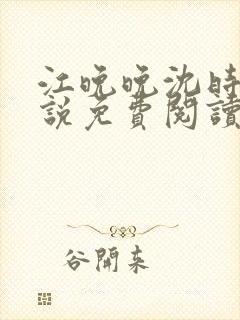 江晚晚沈時
說免費閱讀
谷開來